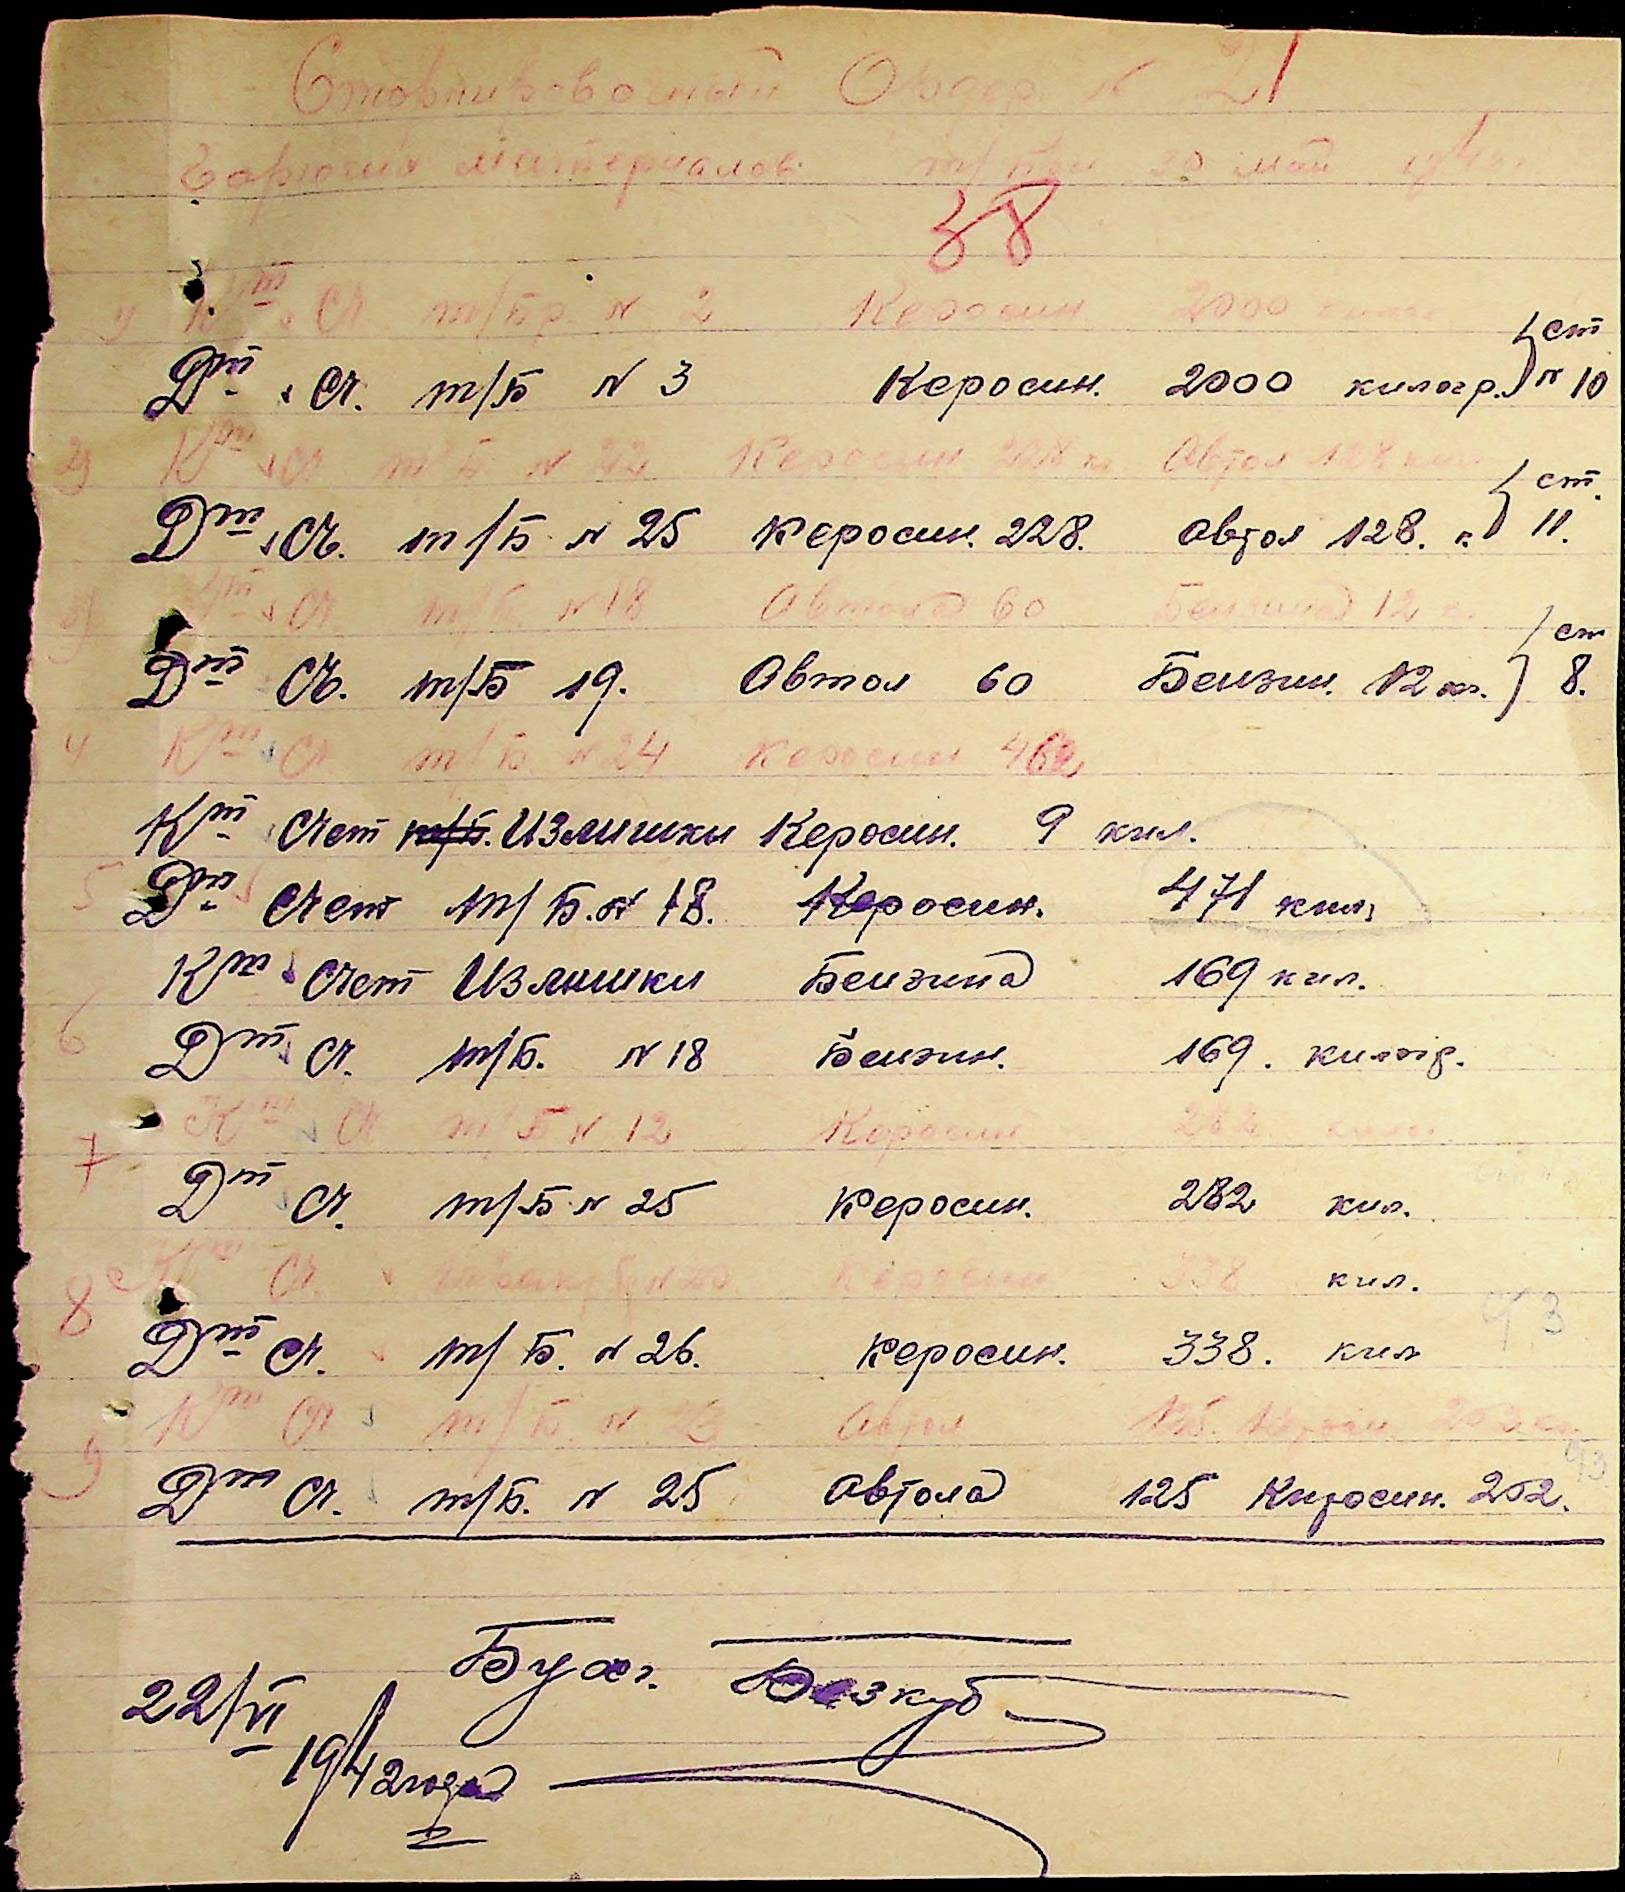 Сторнировочный Ордер N 21
Горючих материалов т/ 30 май
38
1) Кт сч. т/Бр. N 2 Керосин 2000
Дт сч. т/Б N 3 Керосин. 2000 килогр. ст N 10
2) Кт сч т/Б N 22 Керосин 228 к. Автол 128 кил
Дт сч. т/Б N 25 Керосин. 228. автол 128. к. ст. 11.
3) Кт сч. т/Б. N 18 Автола 60 Бензина 12 к.
Дт сч. т/Б 19. Автол 60 Бензин. 12 кг. ст 8.
4 Кт сч т/Б. N 24 Керосин 462
Кт счет т/Б. Излишки Керосин. 9 кил.
5 Дт счет т/Б. N 18. Керосин. 471 кил.
Кт счет Излишки Бензина 169 кил.
6 Дт сч. т/Б. N 18 Бензин. 169. килогр.
7 Кт сч т/Б N 12 Керосин 282 кил
Дт сч. т/Б N 25 Керосин. 282 кил.
8 Кт сч. Керосин 338 кил.
Дт сч. т/Б. N 26. Керосин. 338. кил
93
9 Кт сч т/Б. N 23 Автол 125. Керосин 202
Дт сч. т/Б. N 25 автола 125 Киросин. 202.
93
Бухг. Безкуб
22/VI
1942 года